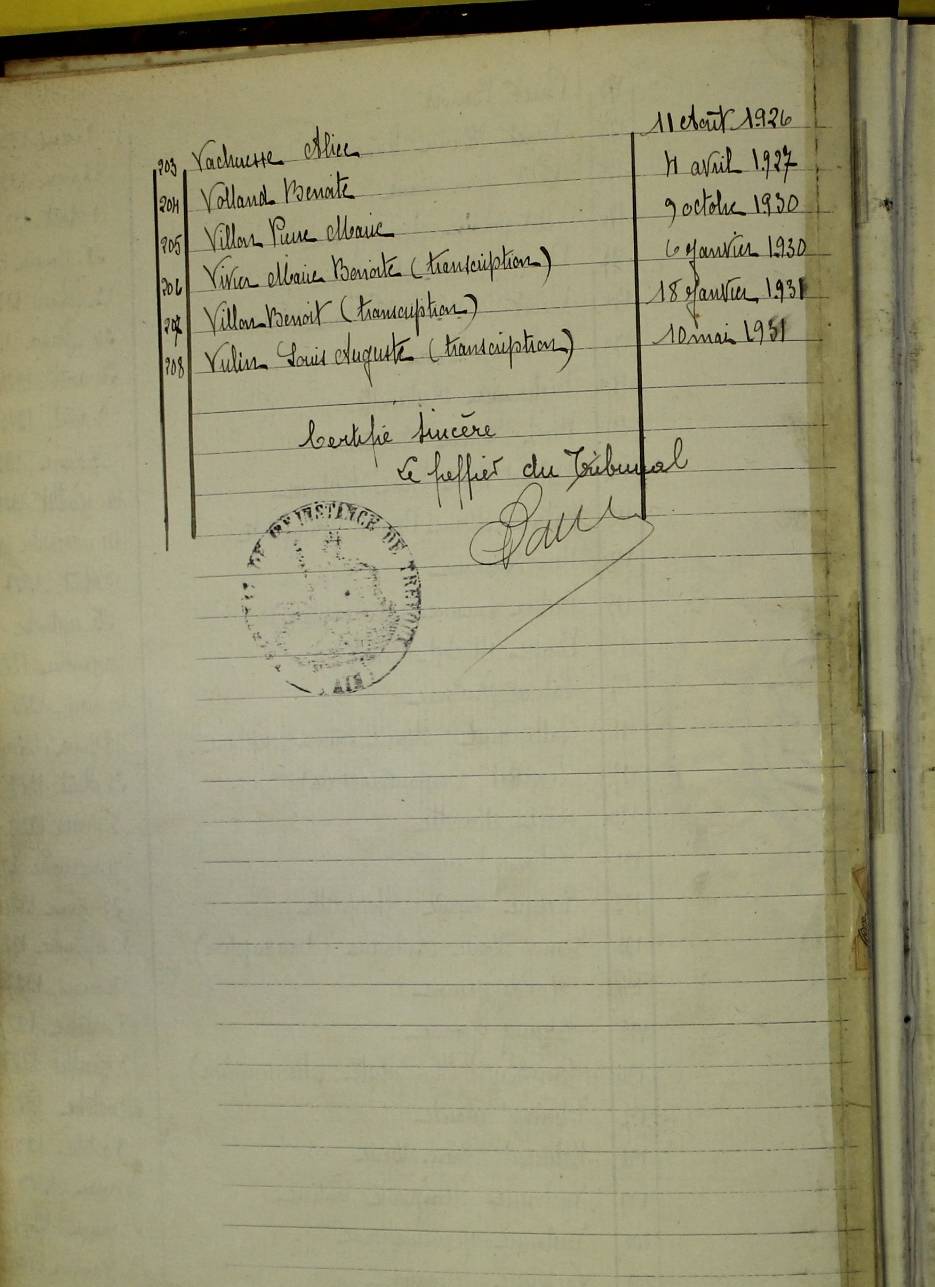 203 Vachresse Alice 11 Août 1926
204 Volland Benoite 4 avril 1927
205 Villon Pierre Marie 9 octobre 1930
206 Vivier Marie Benoite (transcription) 6 Janvier 1930
207 Villon Benoit (transcription) 18 Janvier 1931
208 Vulin Louis Auguste (transcription) 10 mai 1931
Certifié sincère
Le greffier du Tribunal
INSTANCE DE TREVOUX
AIN